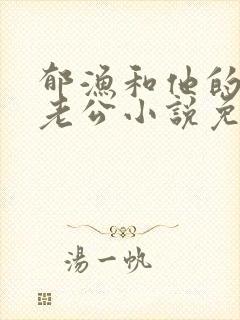 郁漁和他的
老公小說免
湯一帆